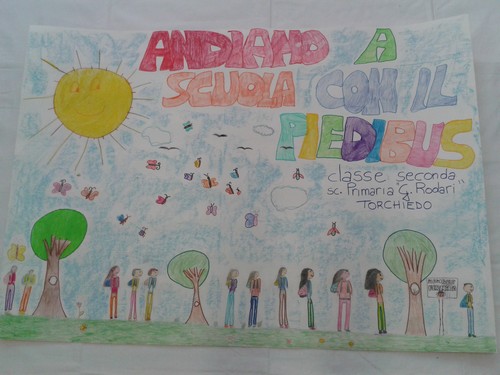 ANDIAMO A
SCUOLA CON IL
PIEDIBUS
classe seconda
sc. Primaria "G. Rodari"
TORCHIEDO